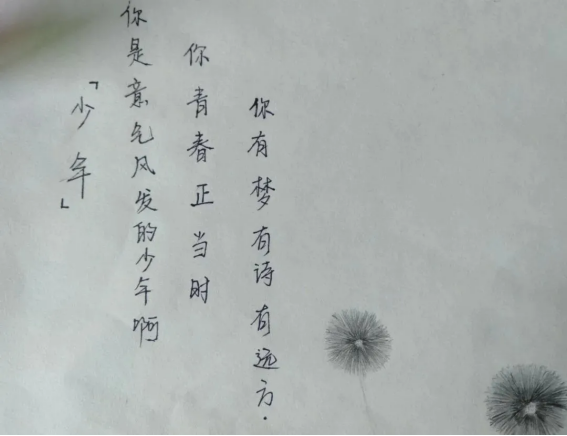 你有梦有诗有远方.
你青春正当时
你是意气风发的少年啊
「少年」